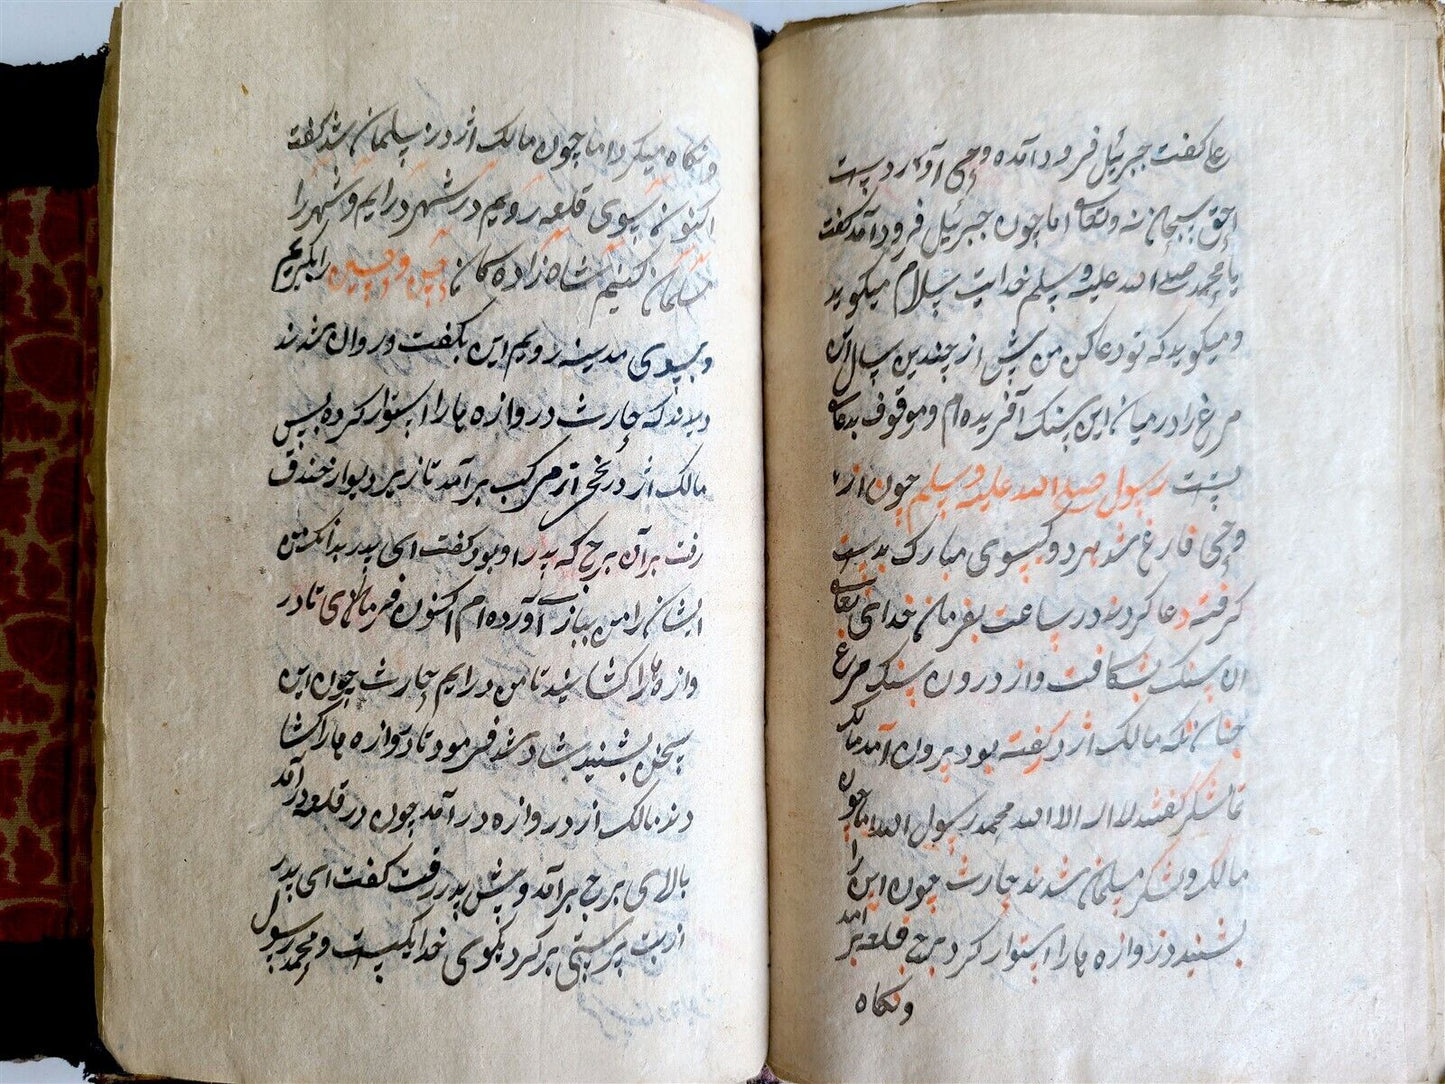 عا گفت جبرئیل فرود آمده وحی آورد پست
حق سبحانه و تعالی اما چون جبرئیل فرود آمد گفت
یا محمد صلی الله علیه وسلم خدایت سلام میگوید
و میگوید که تو دعا کن من پیش از چندین سال این
مرغ را در میان این سنک آفریده ام و موقوف بدعای
تست رسول صلی الله علیه وسلم چون از
وحی فارغ شد هر دو گیسوی مبارک بدست
گرفته دعا کردند در ساعت بفرمان خدای تعالی
ان سنک بشکافت و از درون سنک مرغ
چنانکه مالک اژدر گفته بود بیرون آمد مالک
تا لشکر گفتند لا اله الا الله محمد رسول الله اما چون
مالک و لشکر مسلمان شدند حارث چون این را
بشنید دروازه ها را استوار کرد برج قلعه بر امد
ونکاه
و نکاه میکرد اما چون مالک اژدر مسلمان شد گفت
اکنون بسوی قلعه رویم در شهر درایم و شهر را
مسلمان کنیم شاه زاده کان حسن و حسین را بگیریم
و بسوی مدینه رویم این بگفت و روان شدند
دیدند که حارث دروازه ها را استوار کرده پس
مالک اژدر از مرکب بر آمد تا زیر دیوار خندق
رفت بر آن برج که پدر او بود گفت ای پدر بدانکه من
ایشان را من بباز آورده ام اکنون فرمای تا در
وازه ها را کشایند تا من درایم حارث چون این
سخن بشنید شاد شد فرمود تا دروازه ها را کشا
دند مالک از دروازه در آمد چون در قلعه در آمد
بالای برج بر آمد و پیش پدر رفت گفت ای پدر
از بت پرستی بر کرد بگوی خدا یکیست و محمد رسول